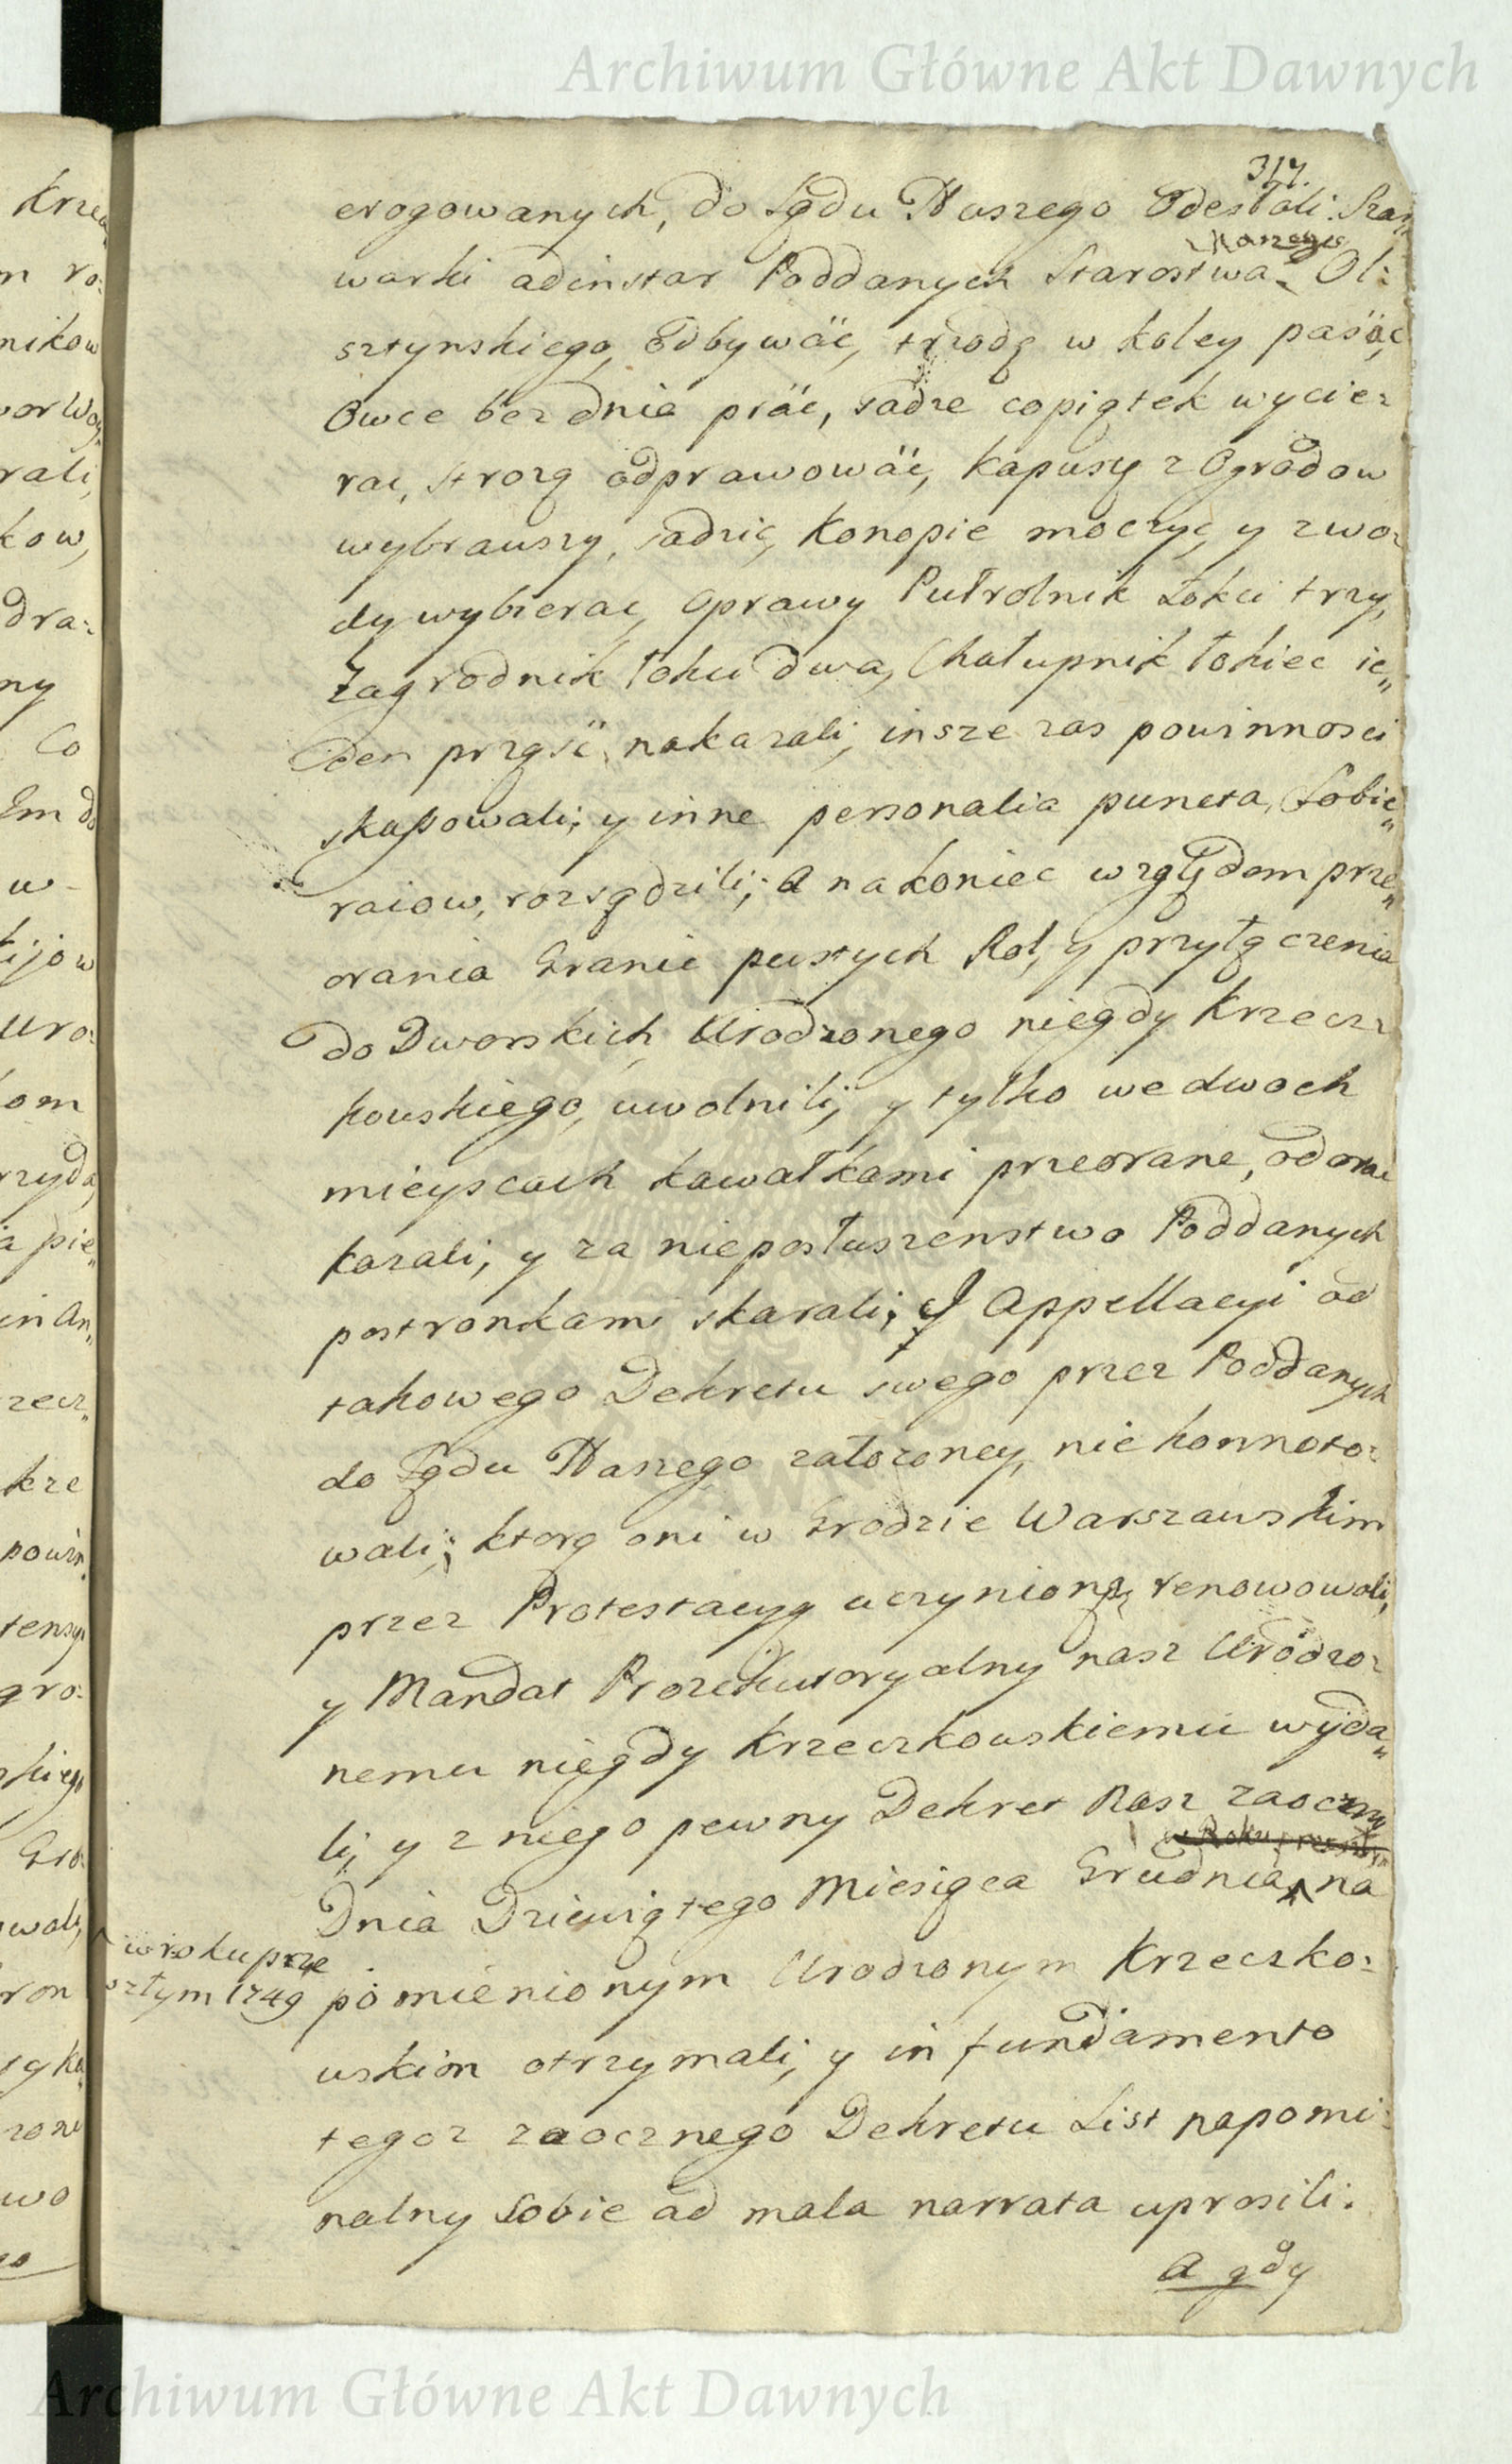 Archiwum Główne Akt Dawnych
317.
erogowanych, do Sądu Naszego Odesłali. Szar„
warki adinstar Poddanych Starostwa Naszego Ol:
sztynskiego, Odbywać, trzodę w koley pasać,
Owce bez dnia prać, sadze co piątek wycie:
rac, strozą odprawować, kapusty z Ogrodow
wybrawszy, sadzic, Konopie moczyc, y z wo:
dy wybierac, Oprawy Pułrolnik Łokci trzy,
Zagrodnik łokci dwa, Chałupnik łokiec ie„
den prząść nakazali, insze zas powinnosci
skassowali, y inne personalia puncta, Sobie„
raiow, rozsądzili; A na koniec względem prze„
orania Granic pustych Rol, y przyłączenia
do Dworskich Urodzonego niegdy Krzecz:
kowskiego, uwolnili, y tylko we dwoch
mieyscach kawałkami przeorane, odorac
kazali, y za nieposłuszenstwo Poddanych
postronkami skarali; Y Appellacyi od
takowego Dekretu swego przez Poddanych
do Sądu Naszego założoney, nie konnoto:
wali; ktorą oni w Grodzie Warszawskim
przez Protestacyą uczynioną, renowowali,
y Mandat Prozekutoryalny nasz Urodzo:
nemu niegdy Krzeczkowskiemu wyda„
li, y z niego pewny Dekret Nasz zaoczny
Dnia Dziewiątego Miesiąca Grudnia na
w roku prze
szłym 1749
pomienionym Urodzonym Krzeczko:
wskim otrzymali, y in fundamento
tegoz zaocznego Dekretu List napomi:
nalny Sobie ad mala narrata uprosili.
A gdy
Archiwum Główne Akt Dawnych